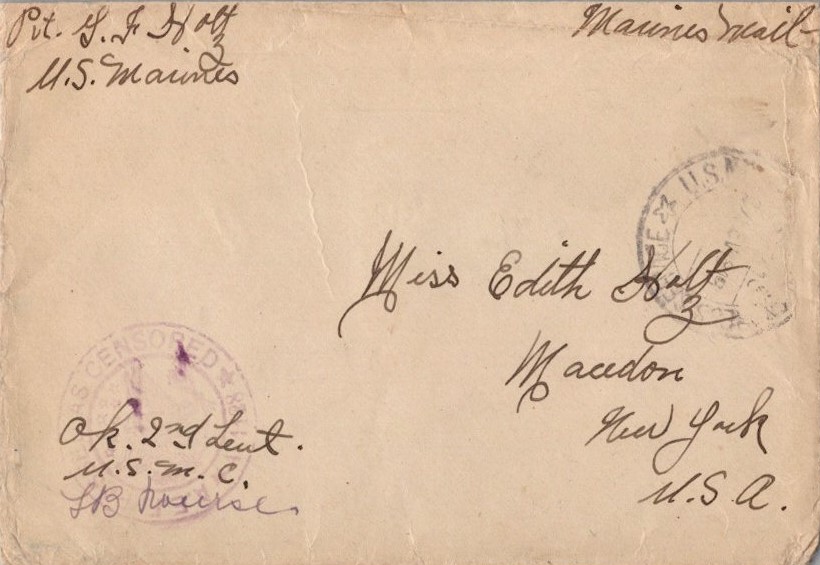 Pvt. G. F. Holtz
U.S. Marines
Marines Mail
U.S.M
Miss Edith Holtz
Macedon
New York
U.S.A.
S CENSORED
Ok. 2nd Leut.
U.S.M.C.
LB Nourse